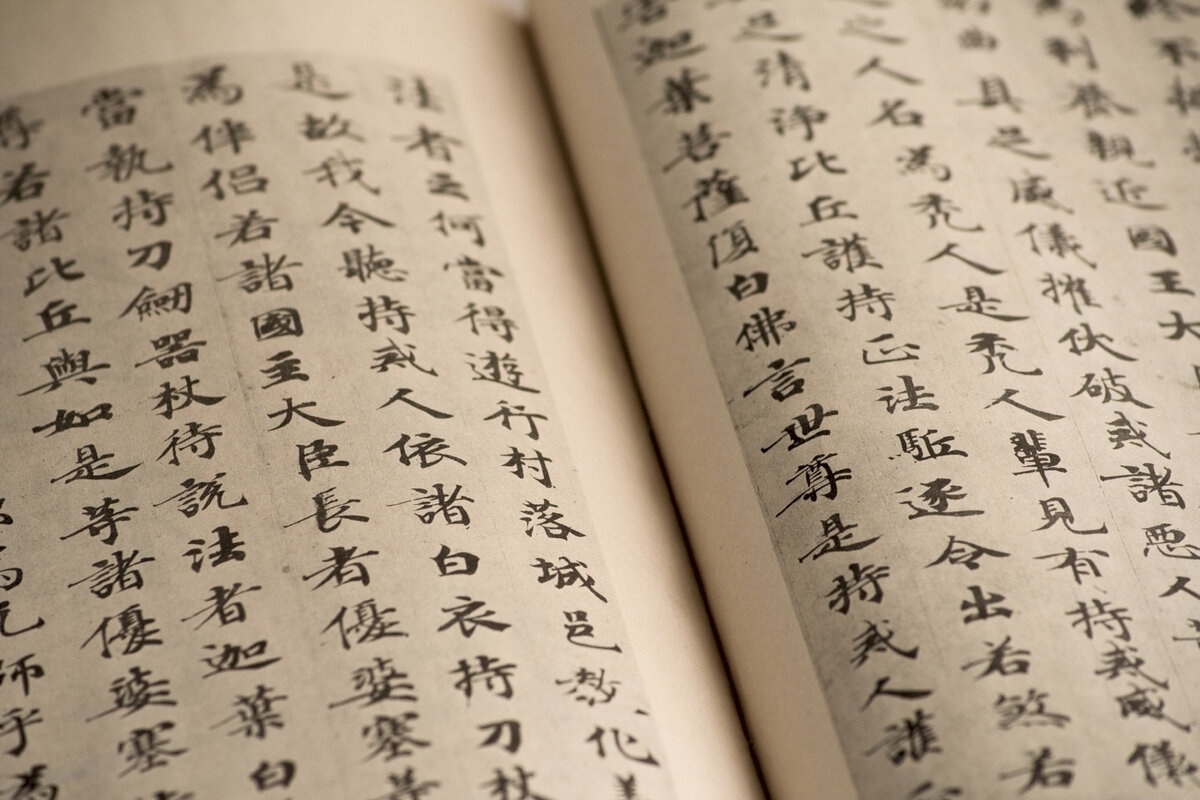 利養親近國王大
曲具足威儀摧伏破戒諸惡人
之人名為禿人是禿人輩見有持戒威儀
足清淨比丘護持正法駈逐令出若煞若
害迦葉菩薩復白佛言世尊是持戒人護
法者云何當得遊行村落城邑教化
是故我今聽持戒人依諸白衣持刀杖
為伴侶若諸國主大臣長者優婆塞等
當執持刀劒器杖待說法者迦葉白
尊若諸比丘與如是等諸優婆塞
師乎為